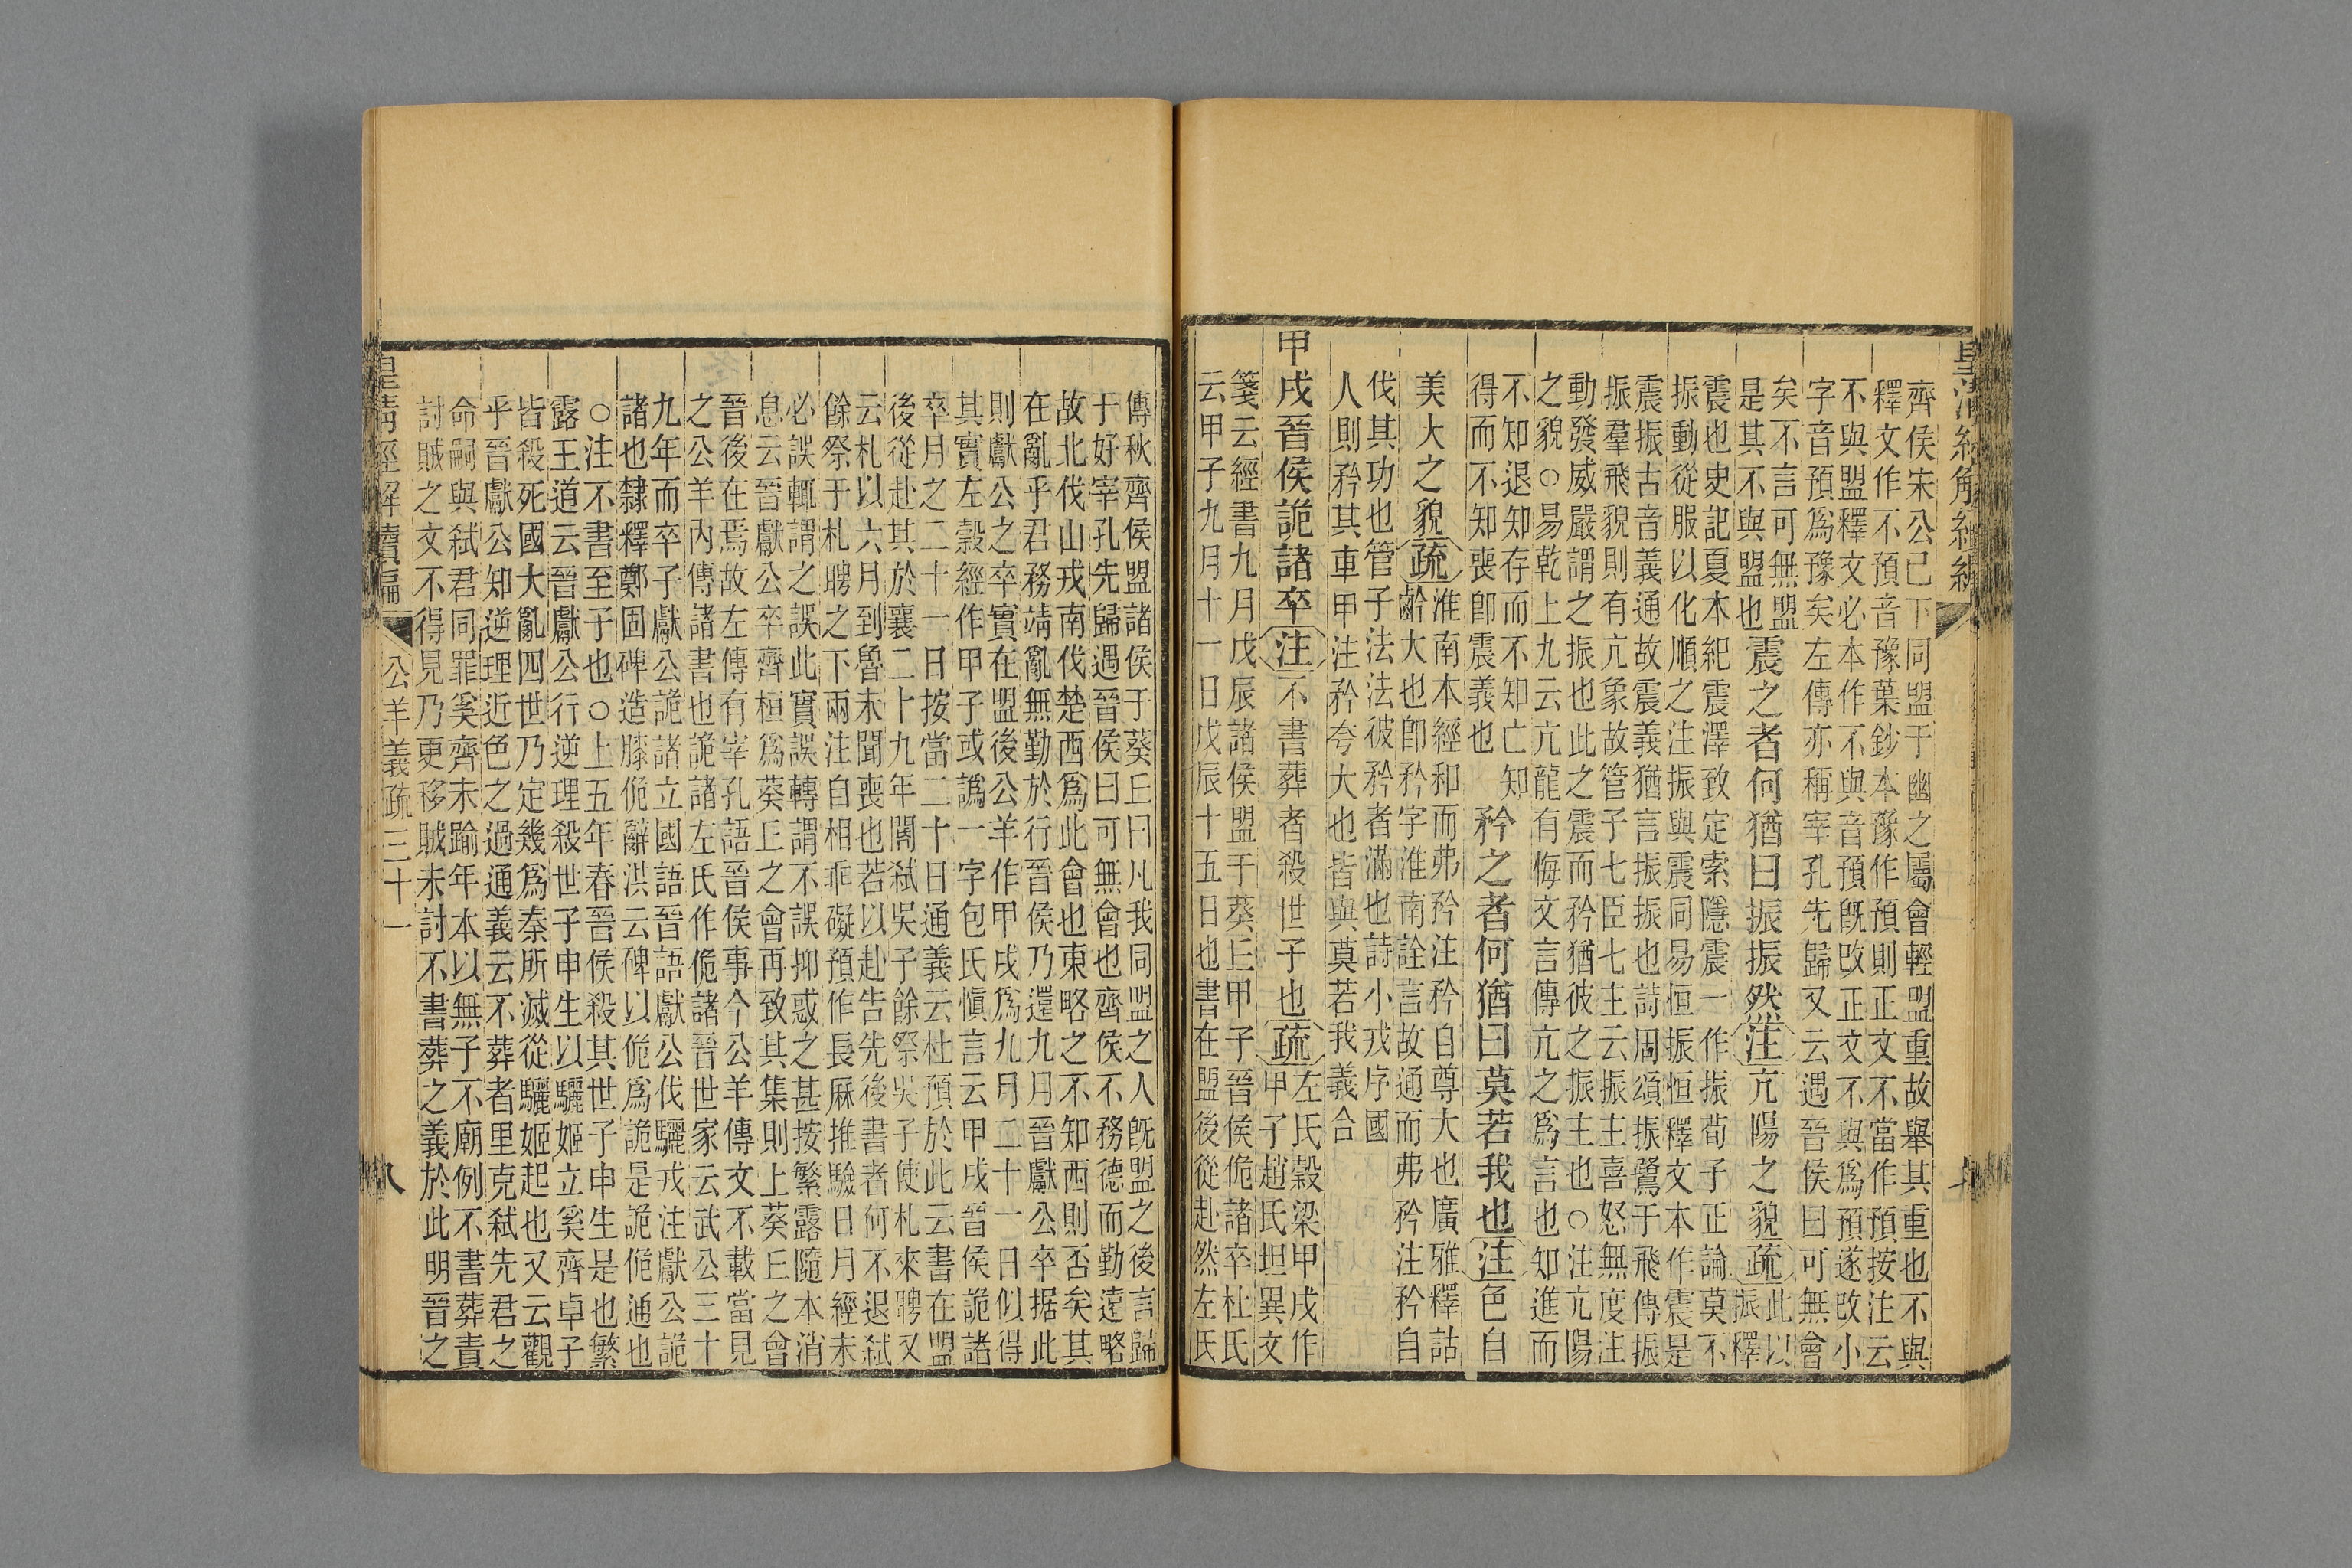 皇清經解續編
齊侯宋公已下同盟于幽之屬會輕盟重故舉其重也不與
釋文作不預音豫葉鈔本豫作預則正文不當作預按注云
不與盟釋文必本作不與音預旣改正文不與爲預遂改小
字音預爲豫矣左傳亦稱宰孔先歸又云遇晉侯曰可無會
矣不言可無盟
是其不與盟也
震之者何猶曰振振然注亢陽之貌疏
此以
振釋
震也史記夏本紀震澤致定索隱震一作振荀子正論莫不
振動從服以化順之注振與震同易恒振恒釋文本作震是
震振古音義通故震義猶言振振也詩周頌振鷺于飛傳振
振羣飛貌則有亢象故管子七臣七主云振主喜怒無度注
動發威嚴謂之振也此之震而矜猶彼之振主也○注亢陽
之貌○易乾上九云亢龍有悔文言傳亢之爲言也知進而
不知退知存而不知亡知
得而不知喪卽震義也
矜之者何猶曰莫若我也注色自
美大之貌疏
淮南本經和而弗矜注矜自尊大也廣雅釋詁
齡大也卽矜字淮南詮言故通而弗矜注矜自
伐其功也管子法法彼矜者滿也詩小戎序國
人則矜其車甲注矜夸大也皆與莫若我義合
甲戌晉侯詭諸卒注不書葬者殺世子也疏
左氏穀梁甲戌作
甲子趙氏坦異文
箋云經書九月戊辰諸侯盟于葵丘甲子晉侯佹諸卒杜氏
云甲子九月十一日戊辰十五日也書在盟後從赴然左氏
傳秋齊侯盟諸侯于葵丘曰凡我同盟之人旣盟之後言歸
于好宰孔先歸遇晉侯曰可無會也齊侯不務德而勤遠略
故北伐山戎南伐楚西爲此會也東略之不知西則否矣其
在亂乎君務靖亂無勤於行晉侯乃還九月晉獻公卒据此
則獻公之卒實在盟後公羊作甲戌爲九月二十一日似得
其實左穀經作甲子或譌一字包氏愼言云甲戌晉侯詭諸
卒月之二十一日按當二十日通義云杜預於此云書在盟
後從赴其於襄二十九年閽弑吳子餘祭吳子使札來聘又
云札以六月到魯未聞喪也若以赴告先後書者何不退弑
餘祭于札聘之下兩注自相乖礙預作長厤推驗日月經未
必誤輒謂之誤此實誤轉謂不誤抑惑之甚按繁露隨本消
息云晉獻公卒齊桓爲葵丘之會再致其集則上葵丘之會
晉後在焉故左傳有宰孔語晉侯事今公羊傳文不載當見
之公羊內傳諸書也詭諸左氏作佹諸晉世家云武公三十
九年而卒子獻公詭諸立國語晉語獻公伐驪戎注獻公詭
諸也隸釋鄭固碑造膝佹辭洪云碑以佹爲詭是詭佹通也
○注不書至子也○上五年春晉侯殺其世子申生是也繁
露王道云晉獻公行逆理殺世子申生以驪姬立奚齊卓子
皆殺死國大亂四世乃定幾爲秦所滅從驪姬起也又云觀
乎晉獻公知逆理近色之過通義云不葬者里克弑先君之
命嗣與弑君同罪奚齊未踰年本以無子不廟例不書葬責
討賊之文不得見乃更移賊未討不書葬之義於此明晉之
皇清經解續編　公羊義疏三十一　八